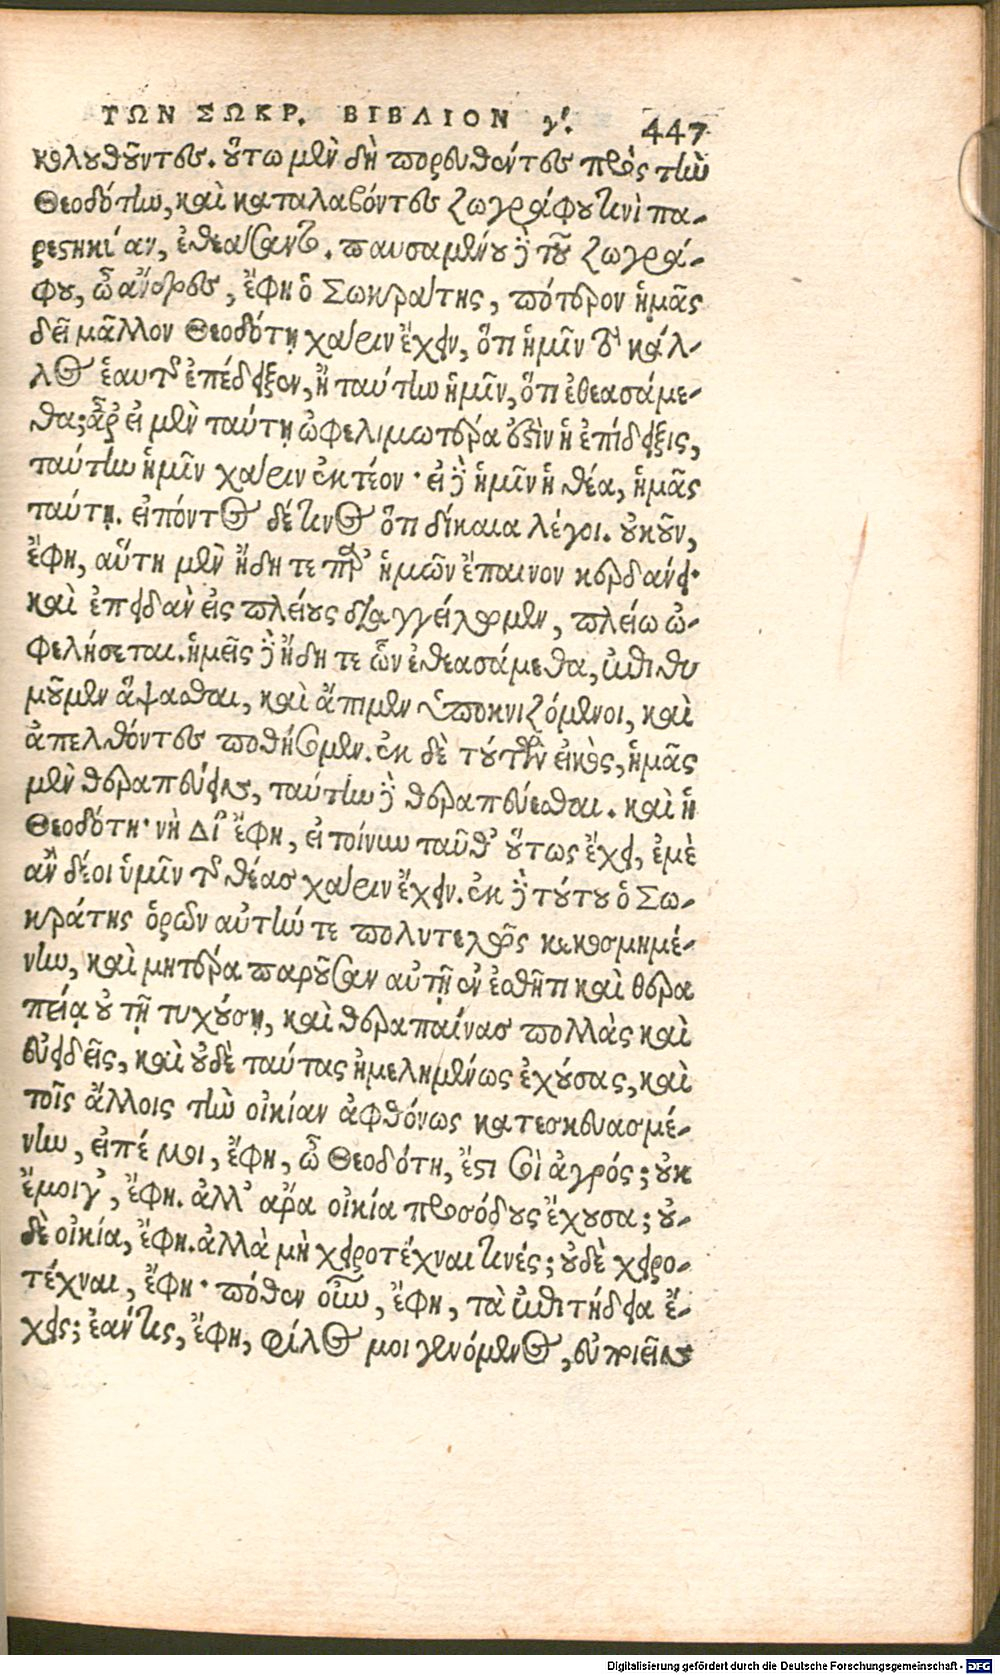 ΤΩΝ ΣΩΚΡ. ΒΙΒΛΙΟΝ γ'. 447
κολουθοῦντες. οὕτω μὲν δὴ πορευθέντες πρὸς τὴν
Θεοδότην, καὶ καταλαβόντες ζωγράφῳ τινὶ πα-
ρεστηκίαν, ἐθεάσαντο. παυσαμένου δὲ τοῦ ζωγρά-
φου, ὦ ἄνδρες, ἔφη ὁ Σωκράτης, πότερον ἡμᾶς
δεῖ μᾶλλον Θεοδότῃ χάριν ἔχειν, ὅτι ἡμῖν τὸ κάλ-
λος ἑαυτῆς ἐπέδειξεν, ἢ ταύτην ἡμῖν, ὅτι ἐθεασάμε-
θα; ἆρ' εἰ μὲν ταύτῃ ὠφελιμωτέρα ἐστὶν ἡ ἐπίδειξις,
ταύτην ἡμῖν χάριν ἑκτέον· εἰ δὲ ἡμῖν ἡ θέα, ἡμᾶς
ταύτῃ. εἰπόντος δέ τινος ὅτι δίκαια λέγοι. οὐκοῦν,
ἔφη, αὕτη μὲν ἤδη τε παρ' ἡμῶν ἔπαινον κερδαίνει·
καὶ ἐπειδὰν εἰς πλείους διαγγείλωμεν, πλείω ὠ-
φελήσεται. ἡμεῖς δὲ ἤδη τε ὧν ἐθεασάμεθα, ἐπιθυ
μοῦμεν ἅψασθαι, καὶ ἄπιμεν ὑποκνιζόμενοι, καὶ
ἀπελθόντες ποθήσομεν. ἐκ δὲ τούτων εἰκὸς, ἡμᾶς
μὲν θεραπεύειν, ταύτην δὲ θεραπεύεσθαι. καὶ ἡ
Θεοδότη· νὴ Δί' ἔφη, εἰ τοίνυν ταῦθ' οὕτως ἔχει, ἐμὲ
ἂν δέοι ὑμῖν τῆς θέας χάριν ἔχειν. ἐκ δὲ τούτου ὁ Σω-
κράτης ὁρῶν αὐτήν τε πολυτελῶς κεκοσμημέ-
νην, καὶ μητέρα παροῦσαν αὐτῇ ἐν ἐσθῆτι καὶ θερα
πείᾳ οὐ τῇ τυχούσῃ, καὶ θεραπαίνας πολλὰς καὶ
εὐειδεῖς, καὶ οὐδὲ ταύτας ἠμελημένως ἐχούσας, καὶ
τοῖς ἄλλοις τὴν οἰκίαν ἀφθόνως κατεσκευασμέ-
νην, εἰπέ μοι, ἔφη, ὦ Θεοδότη, ἔστι σοὶ ἀγρός; οὐκ
ἔμοιγ', ἔφη. ἀλλ' ἄρα οἰκία προσόδους ἔχουσα; οὐ-
δὲ οἰκία, ἔφη. ἀλλὰ μὴ χειροτέχναι τινές; οὐδὲ χειρο-
τέχναι, ἔφη· πόθεν οὖν, ἔφη, τὰ ἐπιτήδεια ἔ-
χεις; ἐάν τις, ἔφη, φίλος μοι γενόμενος, εὖ ποιεῖν
Digitalisierung gefördert durch die Deutsche Forschungsgemeinschaft - DFG